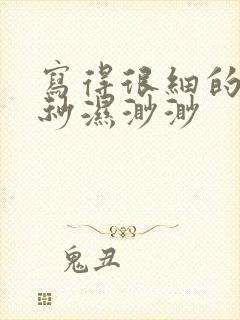 寫得很細的
秒濕渺渺
鬼丑